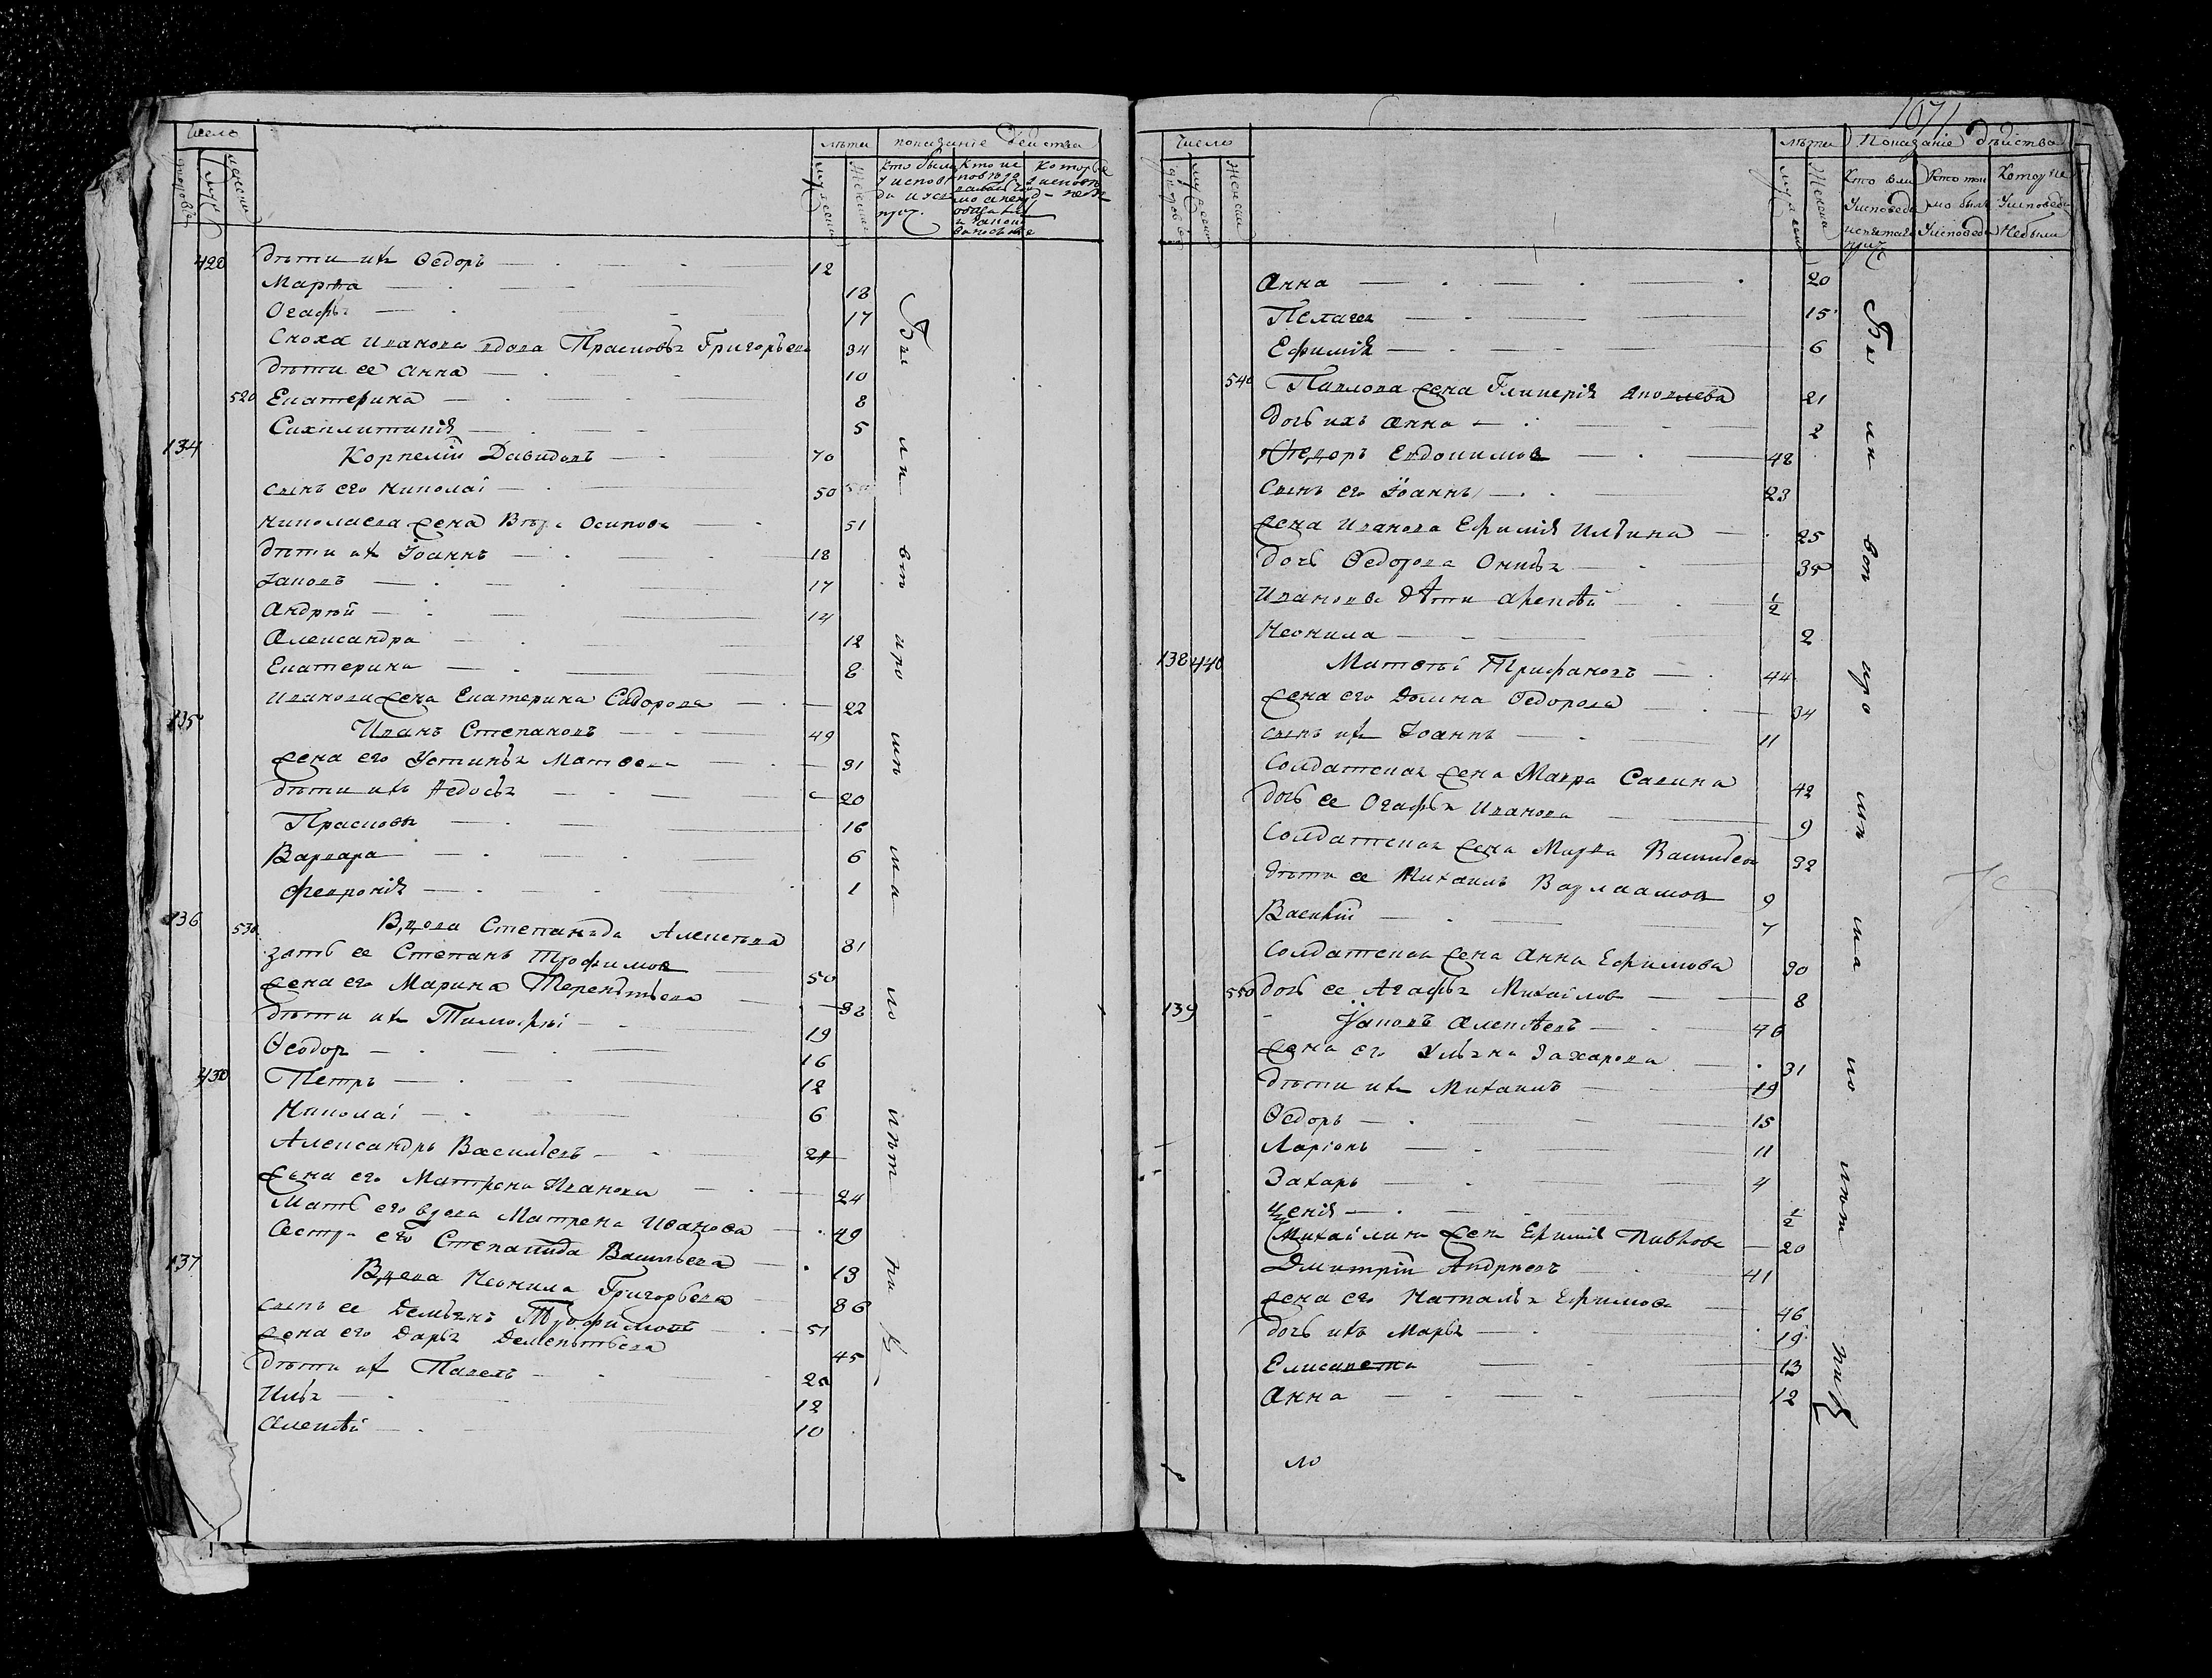 Число
лѣта показаніе дѣйства
420 дѣти ихъ Ѳедоръ 12
Марѳа 18
Огафья 17
Сноха иванова вдова Прасковья Григорьева 34
дѣти ее Анна 10
520 Екатерина 8
5
134 Корнелій Давидовъ 70
сынъ его Николаі 50
николаева жена Вѣра Осипова 51
дѣти ихъ Іоаннъ 18
Іаковъ 17
Андрѣй 14
Александра 12
Екатерина 8
иванова жена Екатерина Сидорова 22
135 Иванъ Степановъ 49
жена его Устинья 31
дѣти ихъ Ѳедосья 20
Прасковья 16
Варвара 6
Феѵронія 1
136 530 Вдова Степанида Алексѣева 81
зять ее Степанъ Трофимовъ 50
жена его Марина Терентьева 32
дѣти ихъ Тимоѳѣі 19
Ѳеодоръ 16
430 Петръ 12
Николаі 6
Александръ Васильевъ 24
жена его Матрена Иванова 24
Мать его вдова Матрена Иванова 49
Сестра его Степанида Васильева 13
137 Вдова Неонила Григорьева 86
сынъ ее Демьянъ Трофимовъ 51
жена его Дарья Дементьева 45
дѣти их Павелъ 20
Илья 12
Алексѣй 10
1071
Число
лѣта Показаніе дѣйства
Кто были Исповеди
Кто токмо былъ Исповеди
Которые Исповеди Небыли
Анна 20
Пелагея 15
Ефимія 6
540 Павлова жена Гликерія Яковлева 21
дочь ихъ Анна 2
Федоръ Евдокимов 48
Сынъ его Іоаннъ 23
жена Иванова Ефимія Ильина 25
дочь Ѳедорова 35
Иванова дѣти 1/2
Неонила 2
138 440 Матвѣі Трифановъ 44
жена его Домна Ѳедорова 34
сынъ ихъ Іоаннъ 11
Солдатская жена Мавра Савина 42
дочь ее Огафья Иванова 9
Солдатская жена Марѳа 32
дѣти ее Михаилъ Варлаамов 9
Василій 7
Солдатская жена Анна Ефимова 30
550 дочь ее Агафья Михайлов 8
139 Іаковъ Алексѣевъ 46
жена его Ульяна Захарова 31
дѣти ихъ Михаилъ 19
Ѳедоръ 15
Ларіонъ 11
Захаръ 4
1/2
Михайлина жена Ефимія 20
Дмитрій Андреевъ 41
жена его Наталья Ефимова 46
дочь ихъ Марья 19
Елисавета 13
Анна 12
ло